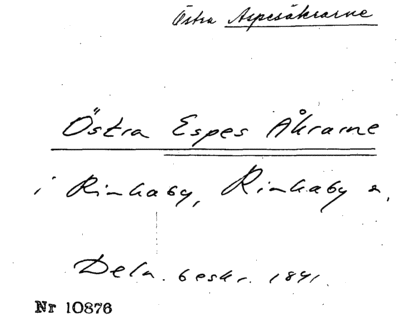 Östra Aspesåkrarne
Östra Espes Åkrarne
i Rinkaby, Rinkaby s.
Deln. beskr. 1841.
Nr 10876